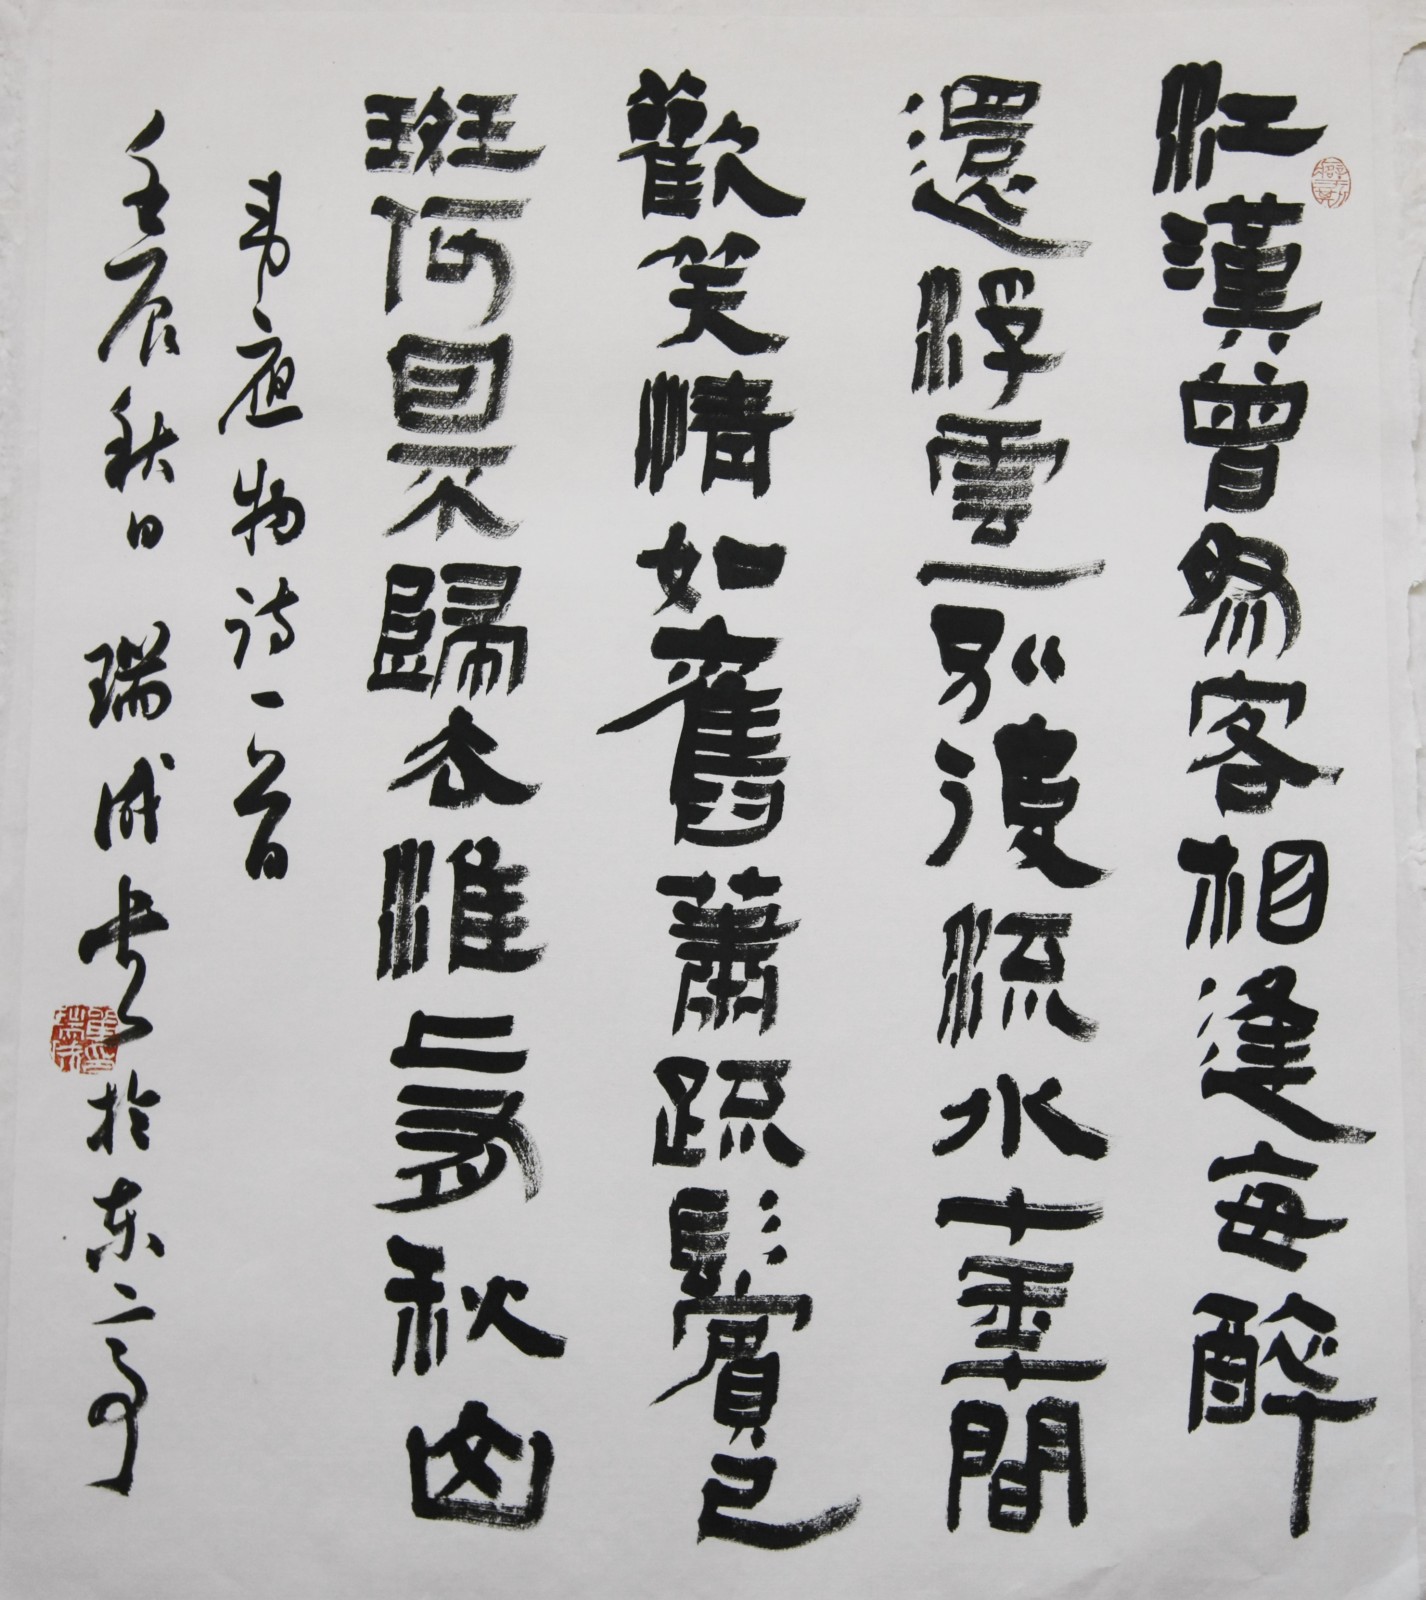 江漢曾為客相逢每醉
還浮雲一別後流水十年間
歡笑情如舊蕭疏鬢已
斑何因不歸去淮上有秋山
韦应物诗一首
壬辰秋日 瑞成书於东亭